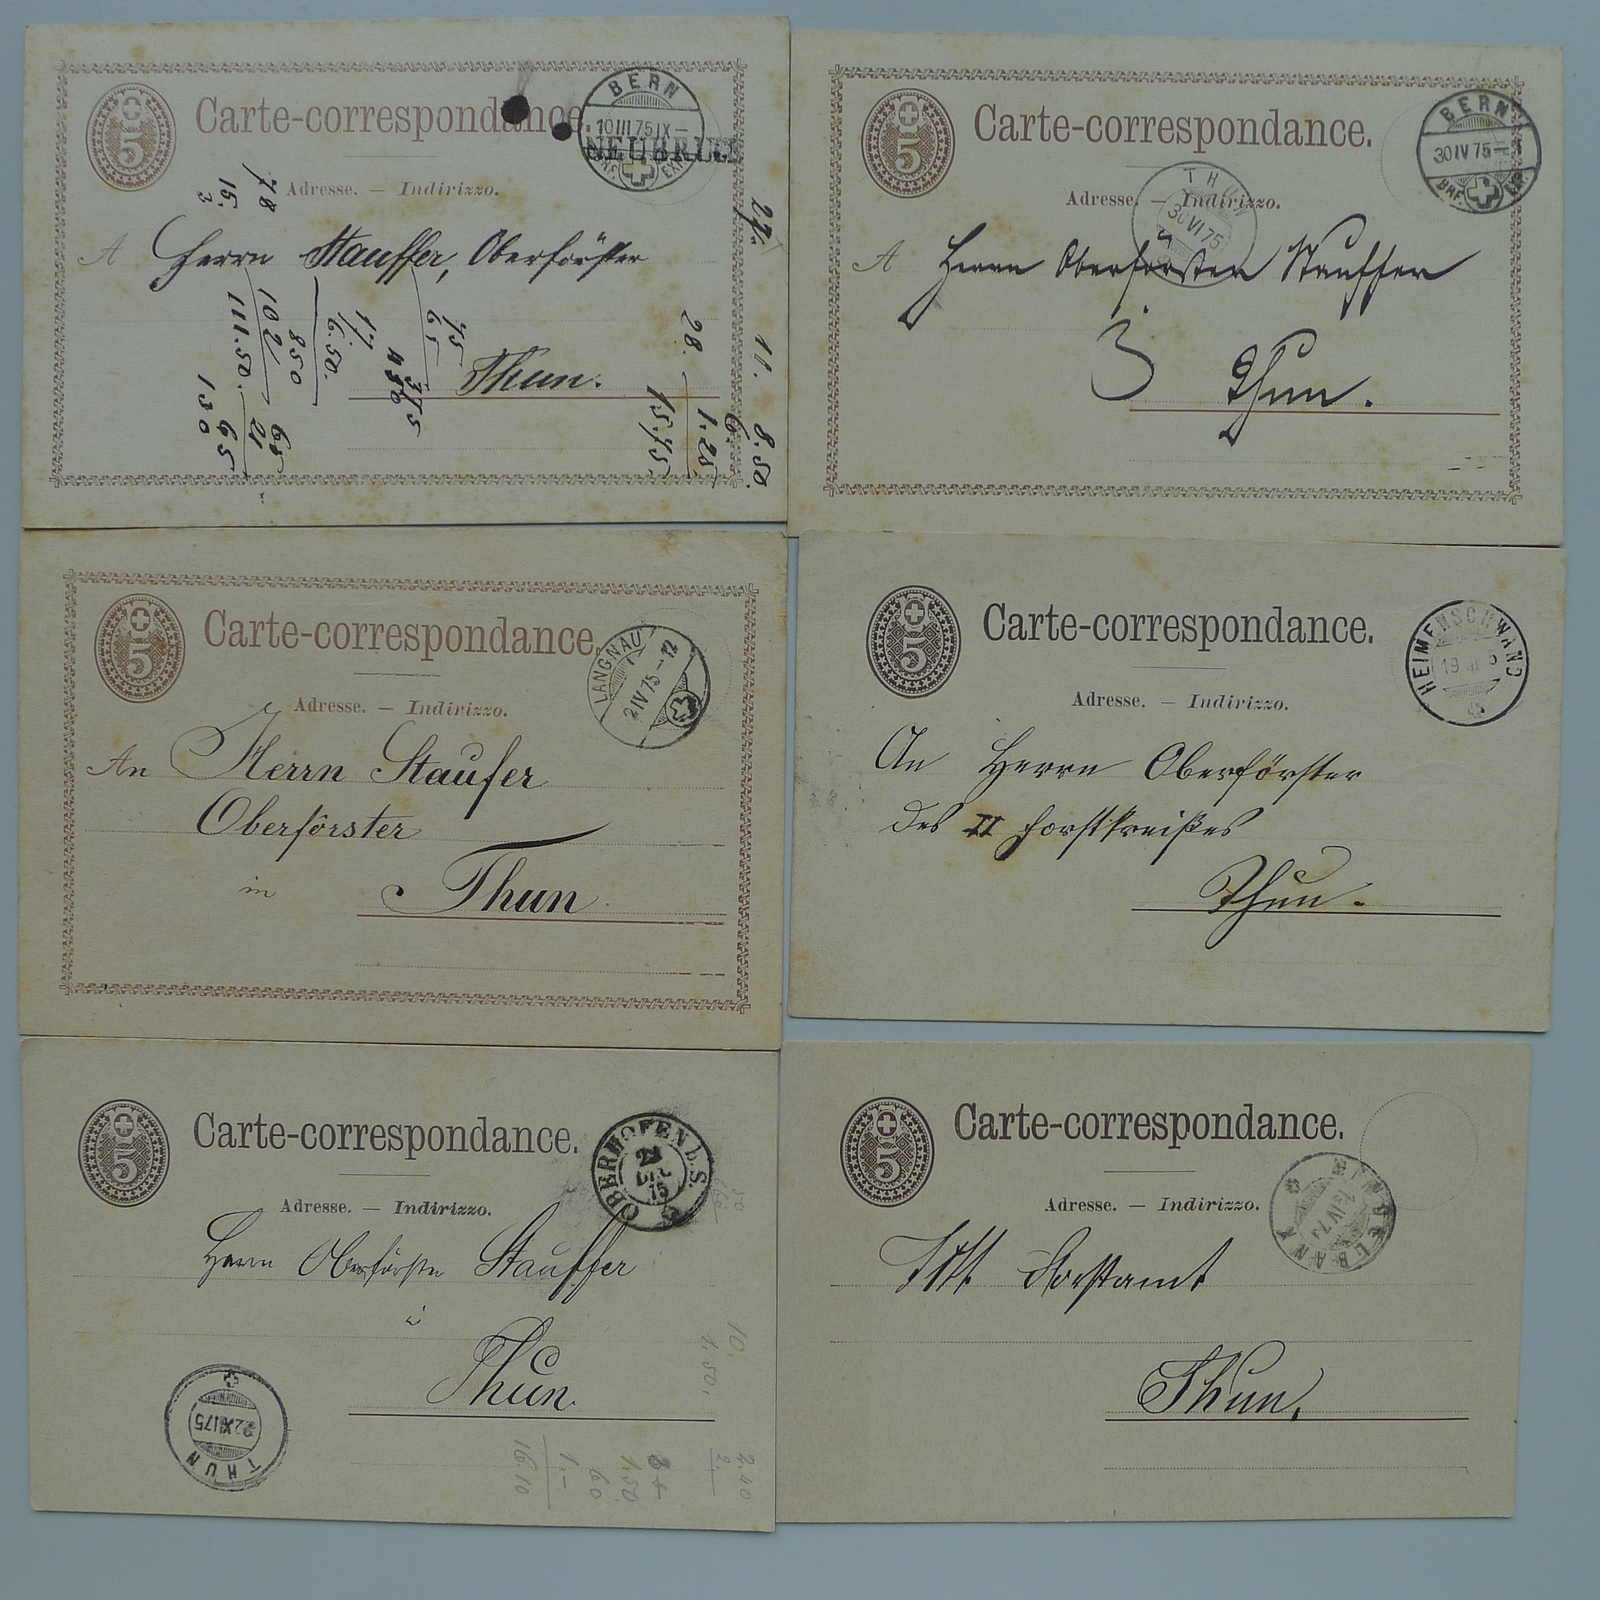 5
Carte-correspondance.
BERN
10 III 75 IX –
BRF. EXP.
NEUBRÜCK
Adresse. — Indirizzo.
A Herrn Stauffer, Oberförster
Thun.
78
15.
3
102
111.50.
850
6.50.
17
75
65
28.
15.45
1.25
6.
11.
8.50.
60
21
65
130
5
Carte-correspondance.
BERN
30 IV 75
BRF. EXP.
Adresse. — Indirizzo.
THUN
30 VI 75
A Herrn Oberförster Stauffer
3
Thun.
5
Carte-correspondance.
LANGNAU
2 IV 75 – 12
Adresse. — Indirizzo.
An Herrn Staufer
Oberförster
in Thun.
5
Carte-correspondance.
HEIMENSCHWAND
19
Adresse. — Indirizzo.
An Herrn Oberförster
des II Forstkreißes
Thun.
5
Carte-correspondance.
OBERHOFEN b. S.
75
Adresse. — Indirizzo.
Herrn Oberförster Stauffer
Thun.
THUN
22 XII 75
10.
1.50.
2.40
2.
1.50
60
1.–
16.10
5
Carte-correspondance.
Adresse. — Indirizzo.
EINDELBANK
Forstamt
Thun.